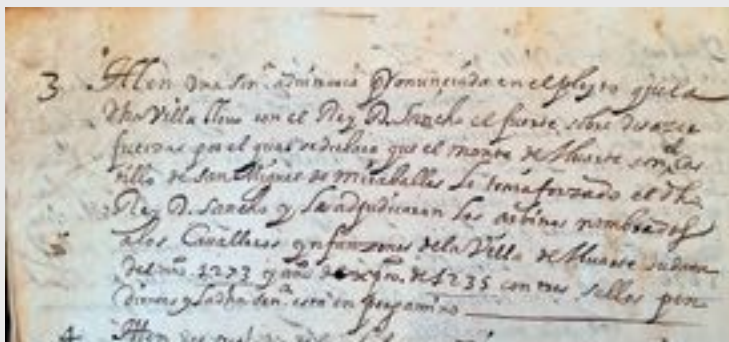 3 Itten una sen.ª arbitraria pronunciada en el pleyto q̃ la
dha Villa llevo con el Rey D. Sancho el fuerte sobre desazer
fuerzas por el qual se declara que el monte de Muarte con el Cas
tillo de San Miguel de miraballes le tenia forzado el dho
Rey D. Sancho y la adjudicaron los arbitros nombrados
a los Cavalleros ynfanzones de la Villa de Muarte su data
del año 1273 y año de de 1235 con tres sellos pen
dientes y la dha sen.ª esta en pergamino
4 Itten